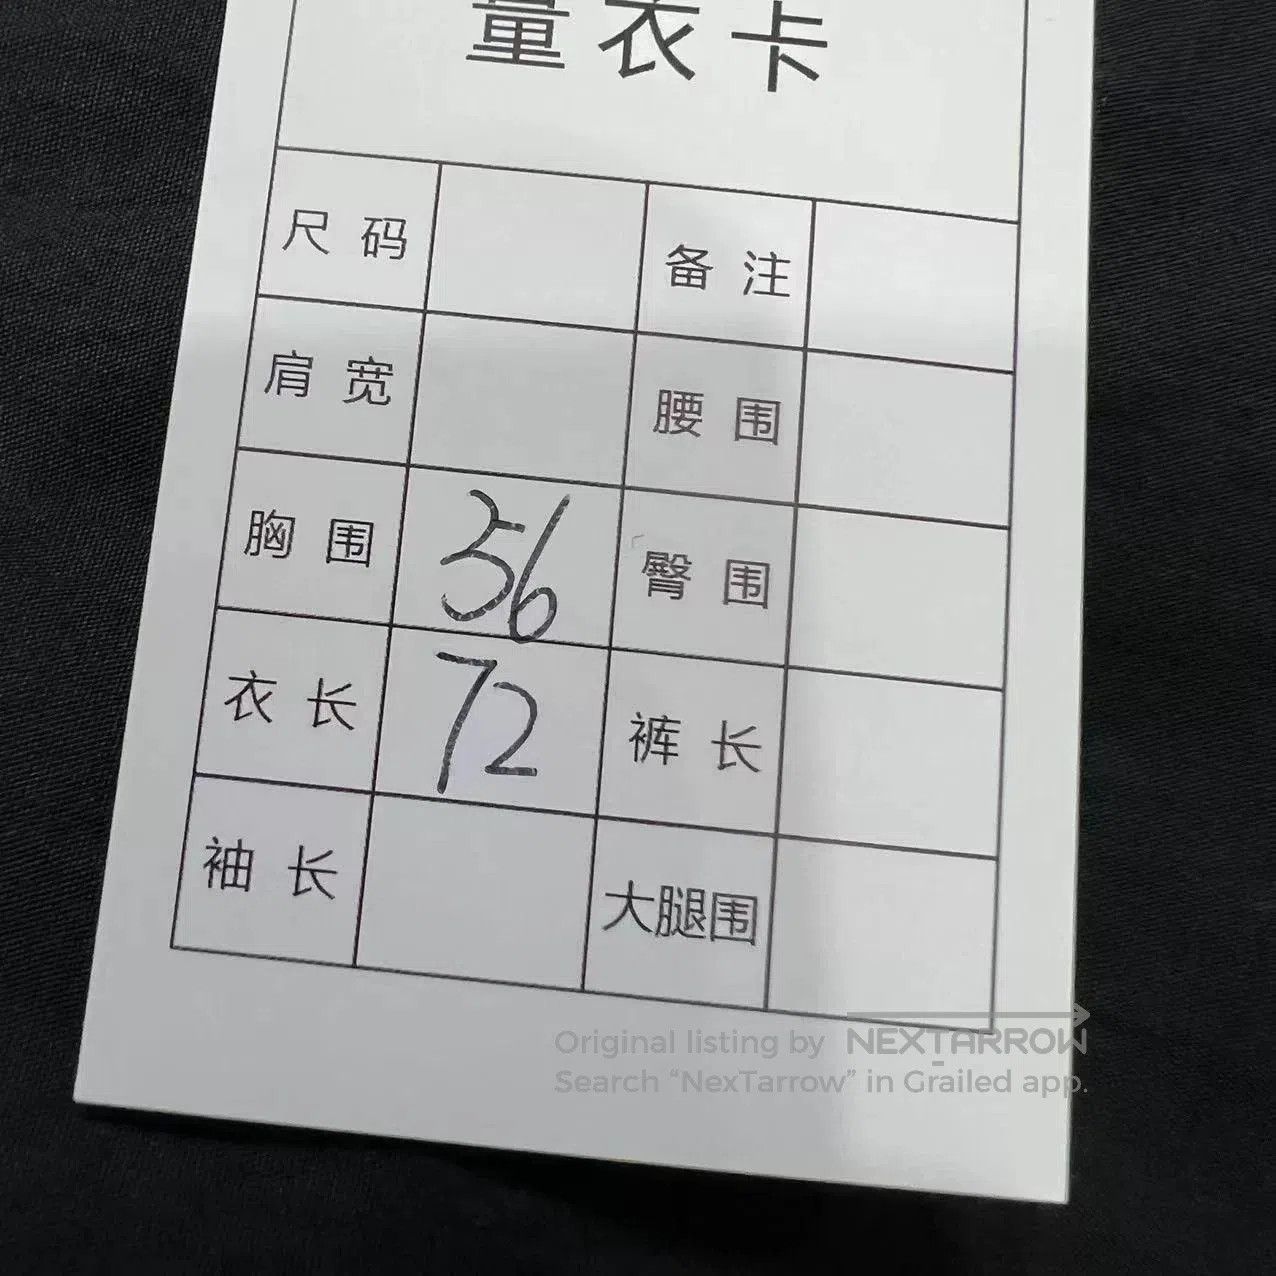 量衣卡
尺码 备注
肩宽 腰围
胸围 56 臀围
衣长 72 裤长
袖长 大腿围
Original listing by NEXTARROW
Search “NexTarrow” in Grailed app.